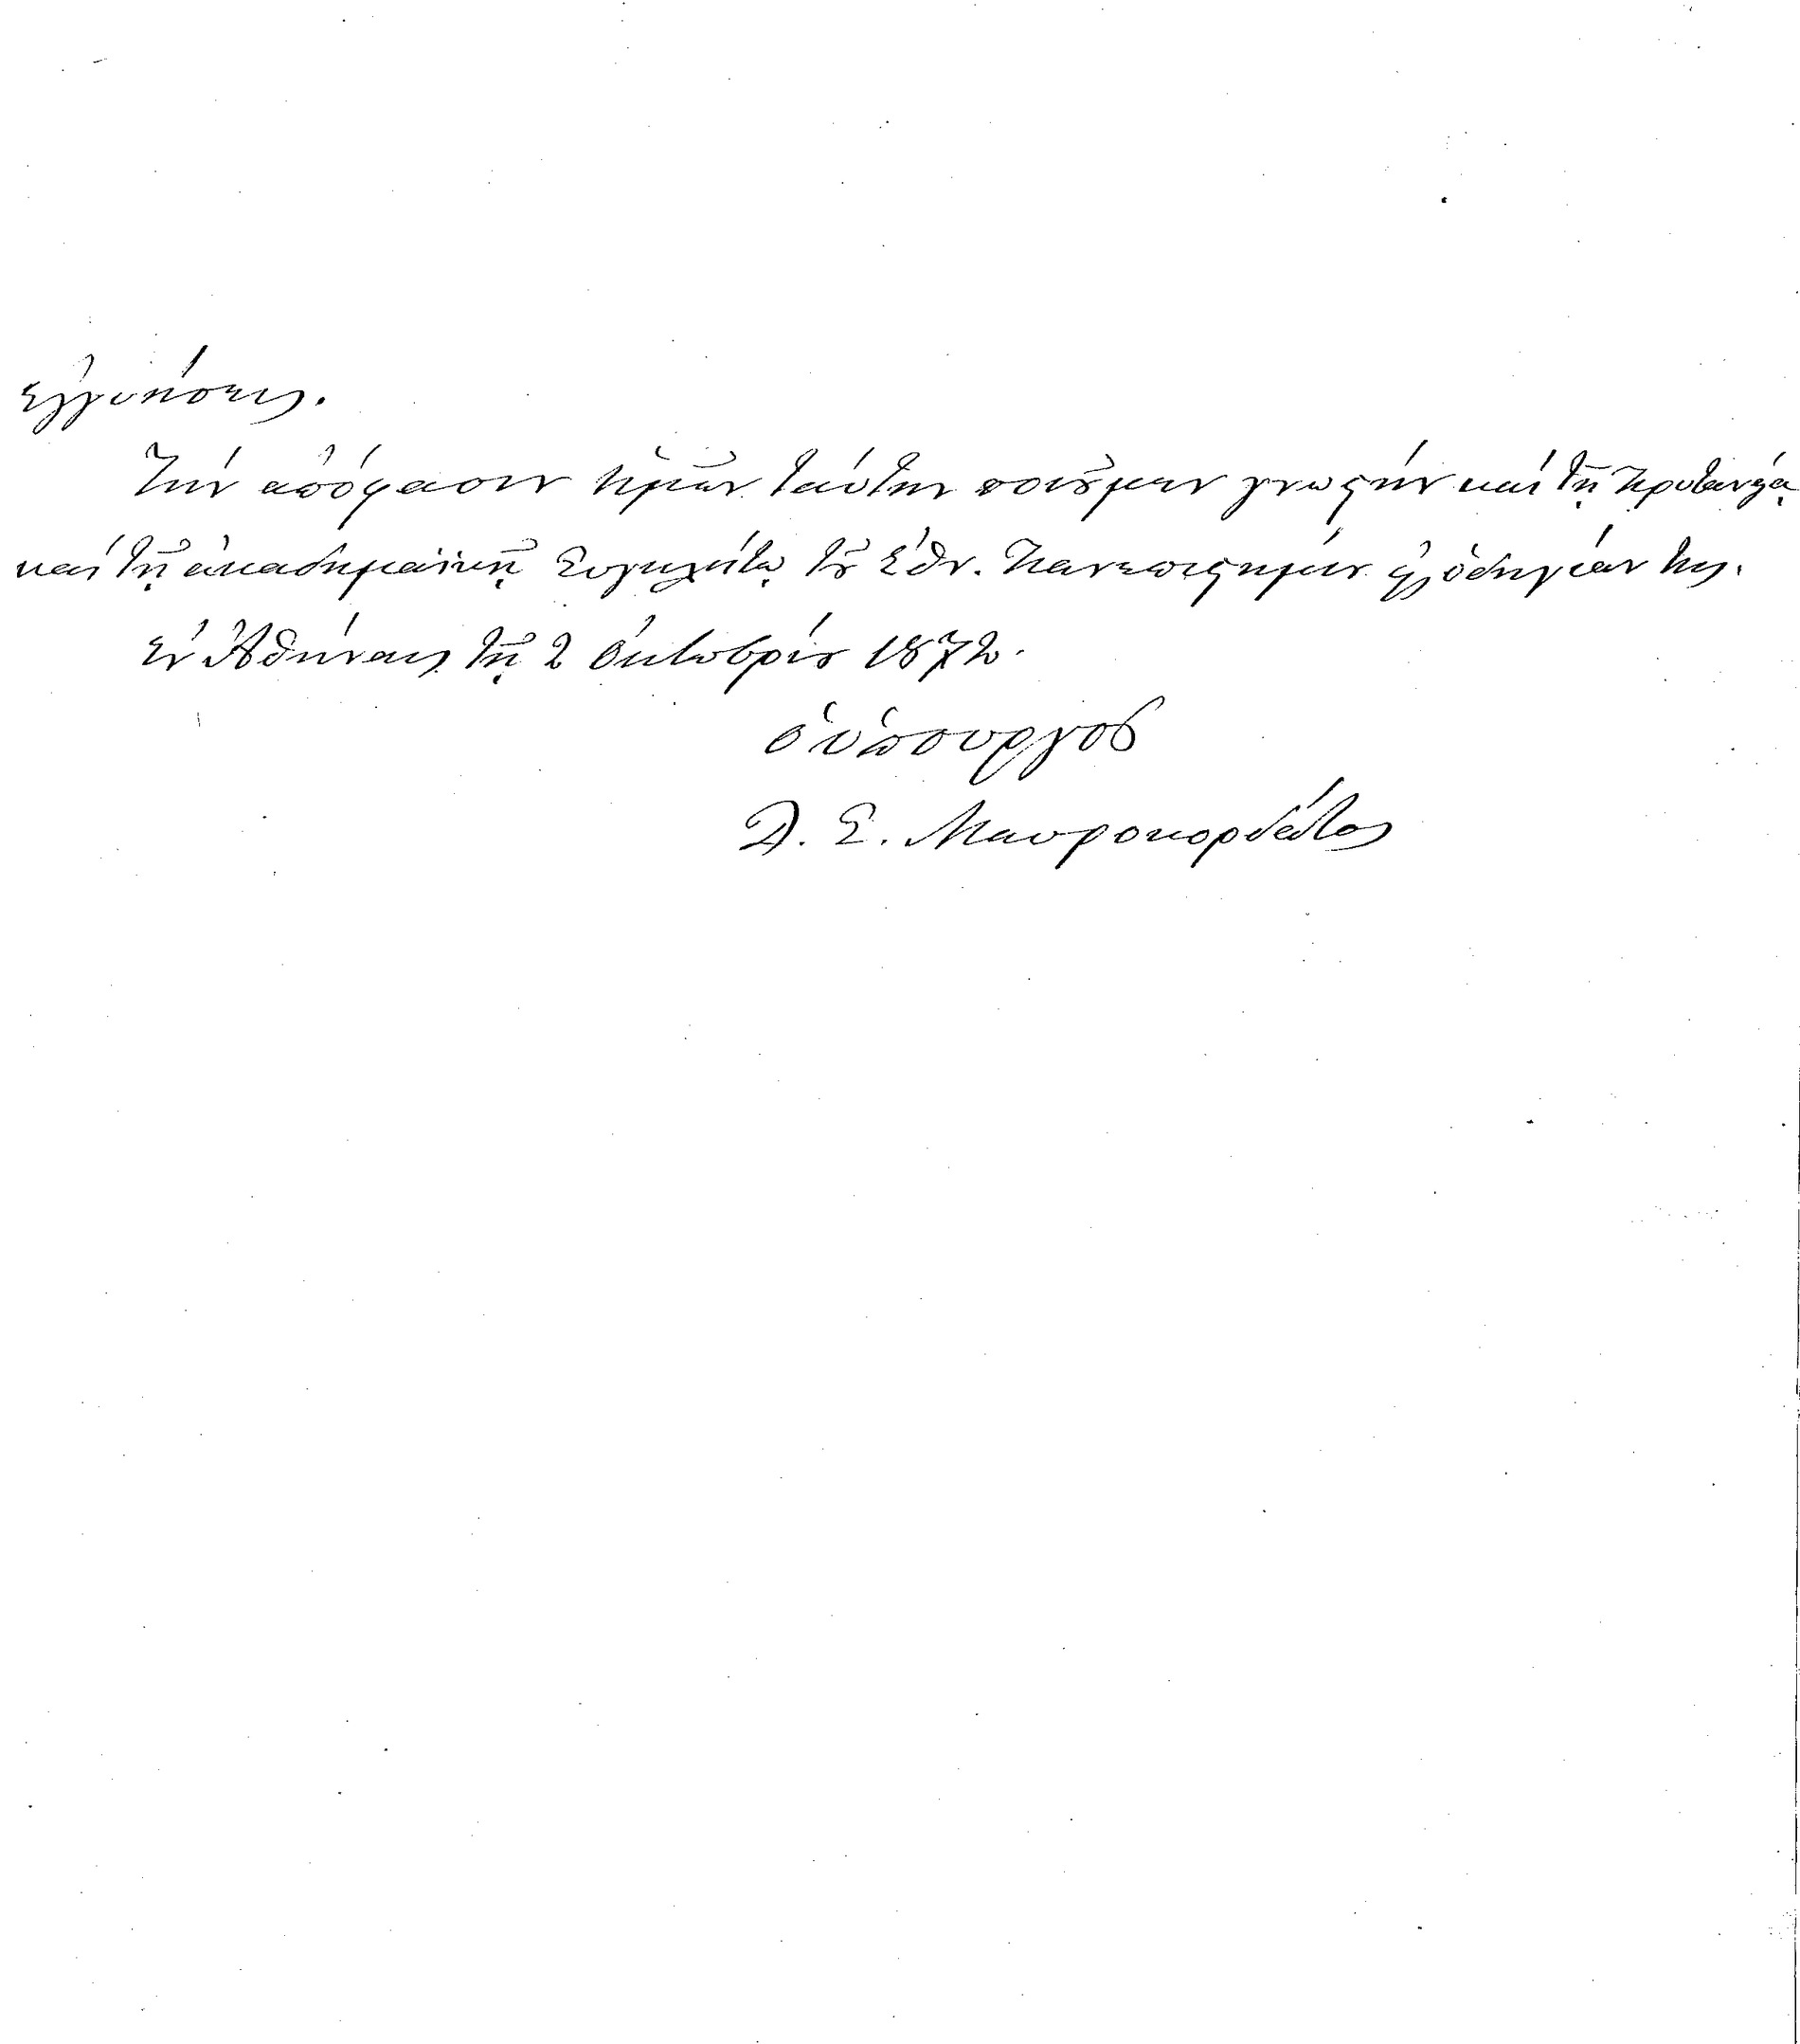 ἐγγυήσεις.
Τὴν ἀπόφασιν ἡμῶν ταύτην ποιοῦμεν γνωστὴν καὶ τῇ πρυτανείᾳ
καὶ τῇ ἀκαδημαϊκῇ Συγκλήτῳ τοῦ Ἐθν. Πανεπιστημίου πρὸς ὁδηγίαν της.
Ἐν Ἀθήναις τῇ 2 Ὀκτωβρίου 1872.
ὁ ὑπουργὸς
Δ. Σ. Μαυροκορδάτος